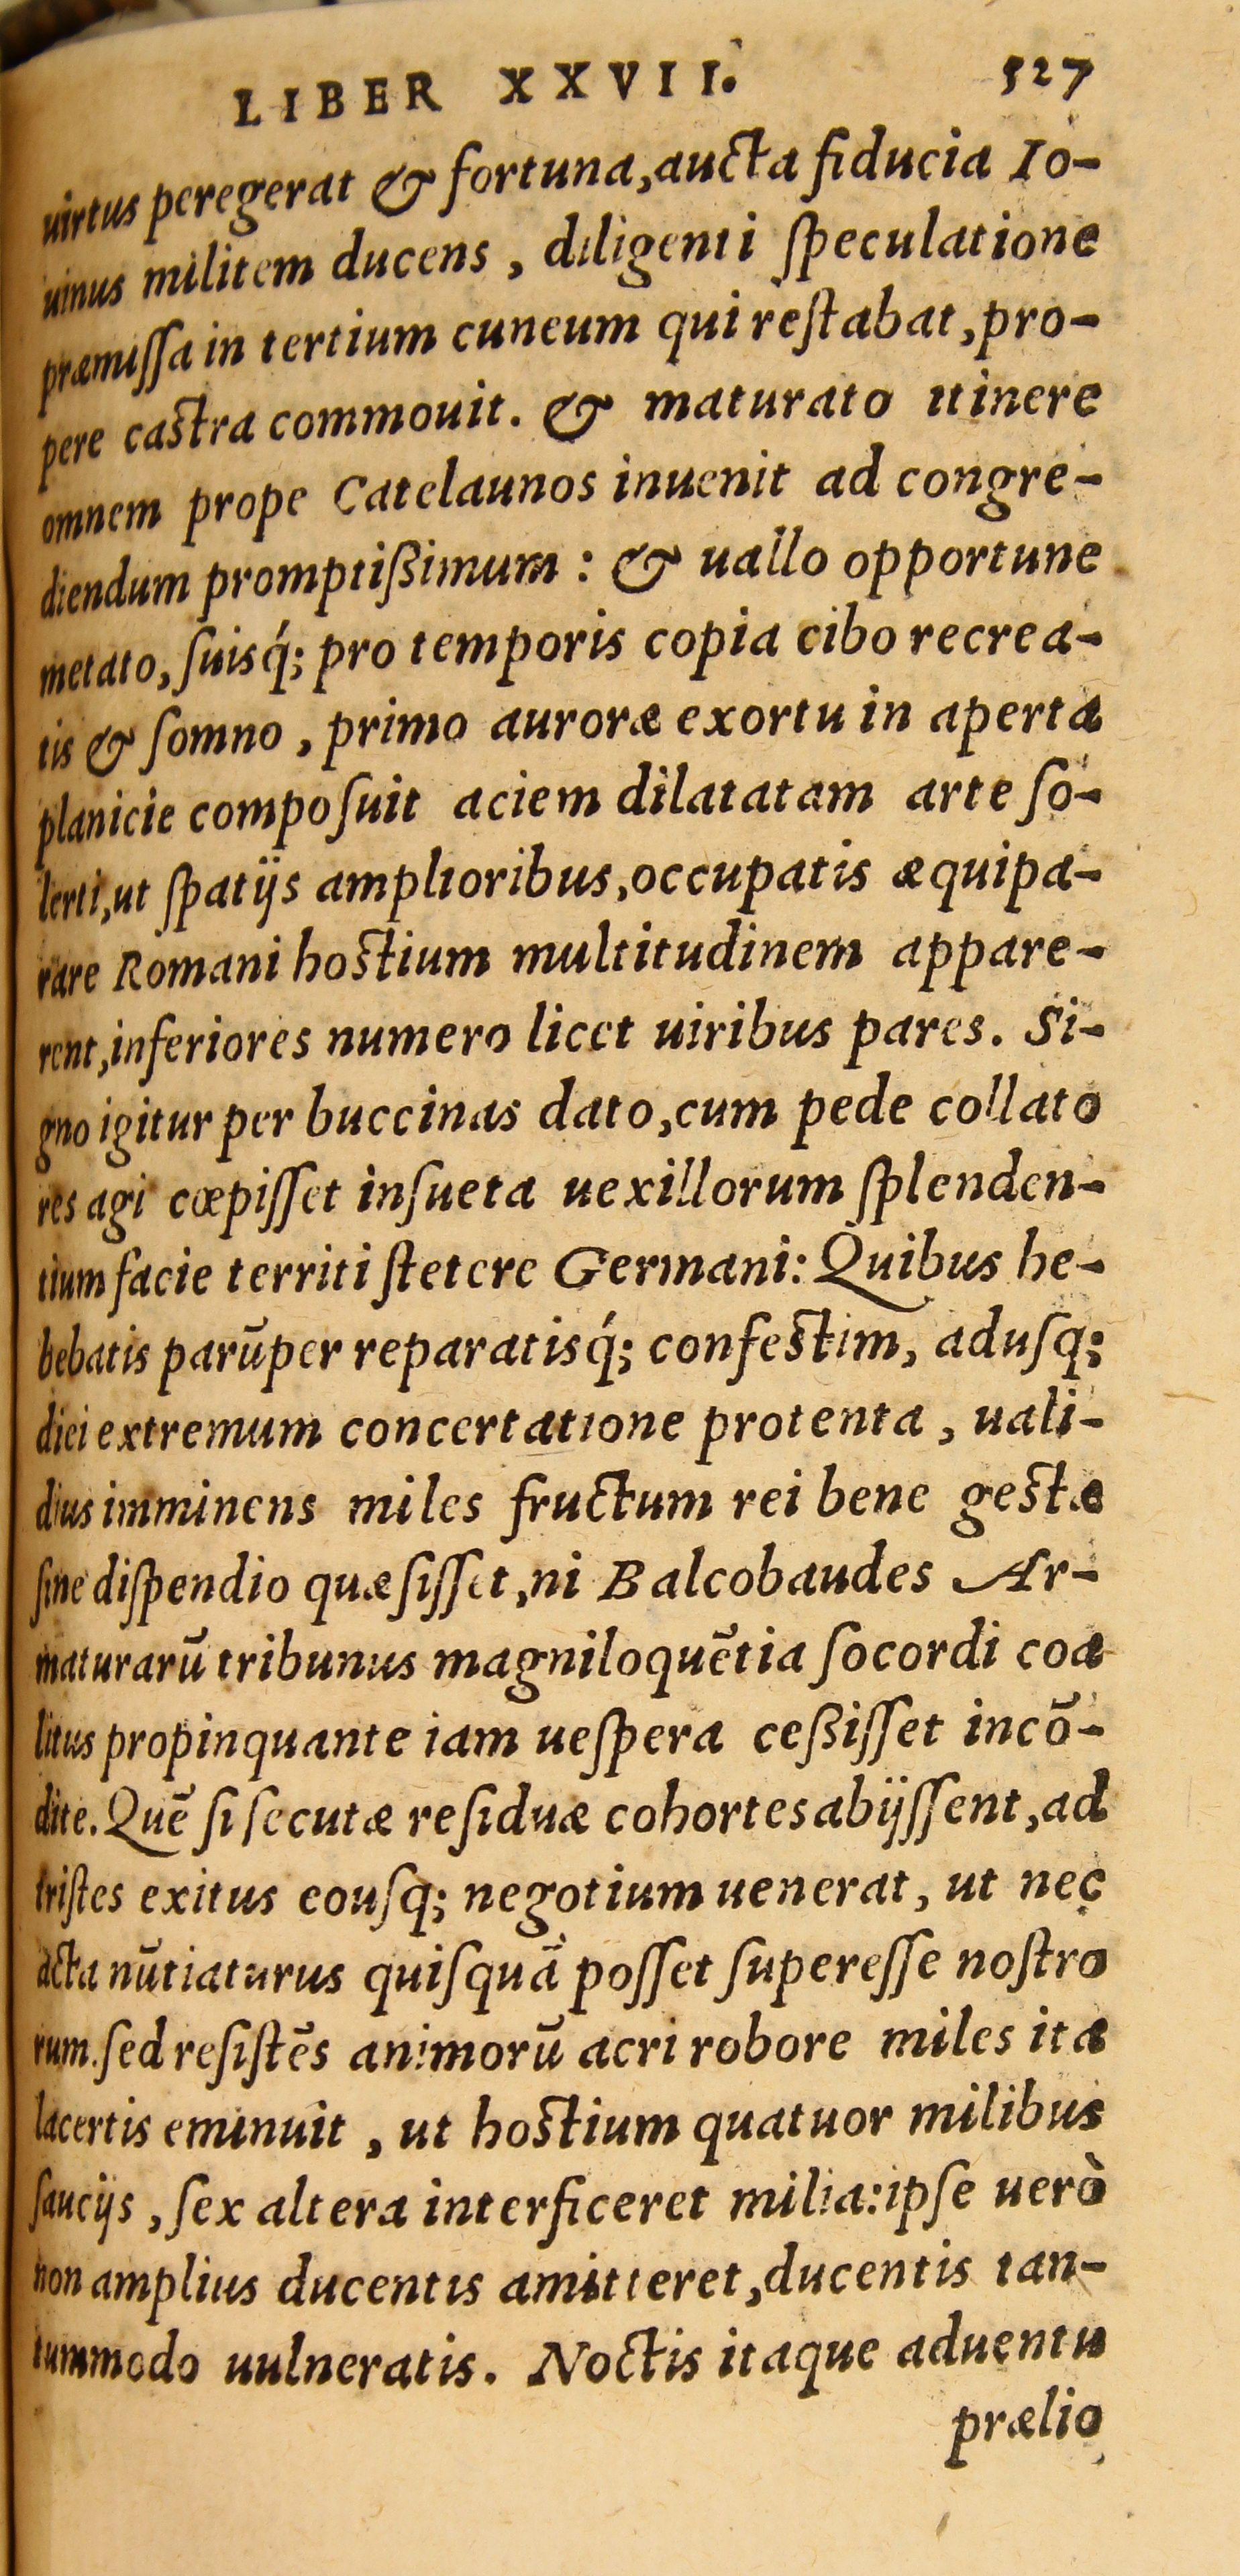 LIBER XXVII. 527
uirtus peregerat & fortuna,aucta fiducia Io-
uinus militem ducens , diligenti ſpeculatione
præmiſſa in tertium cuneum qui reſtabat,pro-
pere caſtra commouit. & maturato itinere
omnem prope Catelaunos inuenit ad congre-
diendum promptißimum : & uallo opportune
metato, ſuisq́; pro temporis copia cibo recrea-
tis & ſomno , primo auroræ exortu in aperta
planicie compoſuit aciem dilatatam arte ſo-
lerti,ut ſpatijs amplioribus,occupatis æquipa-
rare Romani hoſtium multitudinem appare-
rent,inferiores numero licet uiribus pares. Si-
gno igitur per buccinas dato,cum pede collato
res agi cœpiſſet inſueta uexillorum ſplenden-
tium facie territi ſtetere Germani: Quibus he-
bebatis parũper reparatisq́; confeſtim, aduſq;
diei extremum concertatione protenta , uali-
dius imminens miles fructum rei bene geſtæ
ſine diſpendio quæſiſſet,ni Balcobaudes Ar-
maturarũ tribunus magniloquẽtia ſocordi coa
litus propinquante iam ueſpera ceßiſſet incõ-
dite. Quẽ ſi ſecutæ reſiduæ cohortes abijſſent,ad
triſtes exitus eouſq; negotium uenerat, ut nec
acta nũtiaturus quiſquã poſſet ſupereſſe noſtro
rum.ſed reſiſtẽs animorũ acri robore miles ita
lacertis eminuit , ut hoſtium quatuor milibus
ſaucijs , ſex altera interficeret milia:ipſe uerò
non amplius ducentis amitteret,ducentis tan-
tummodo uulneratis. Noctis itaque aduentu
prælio